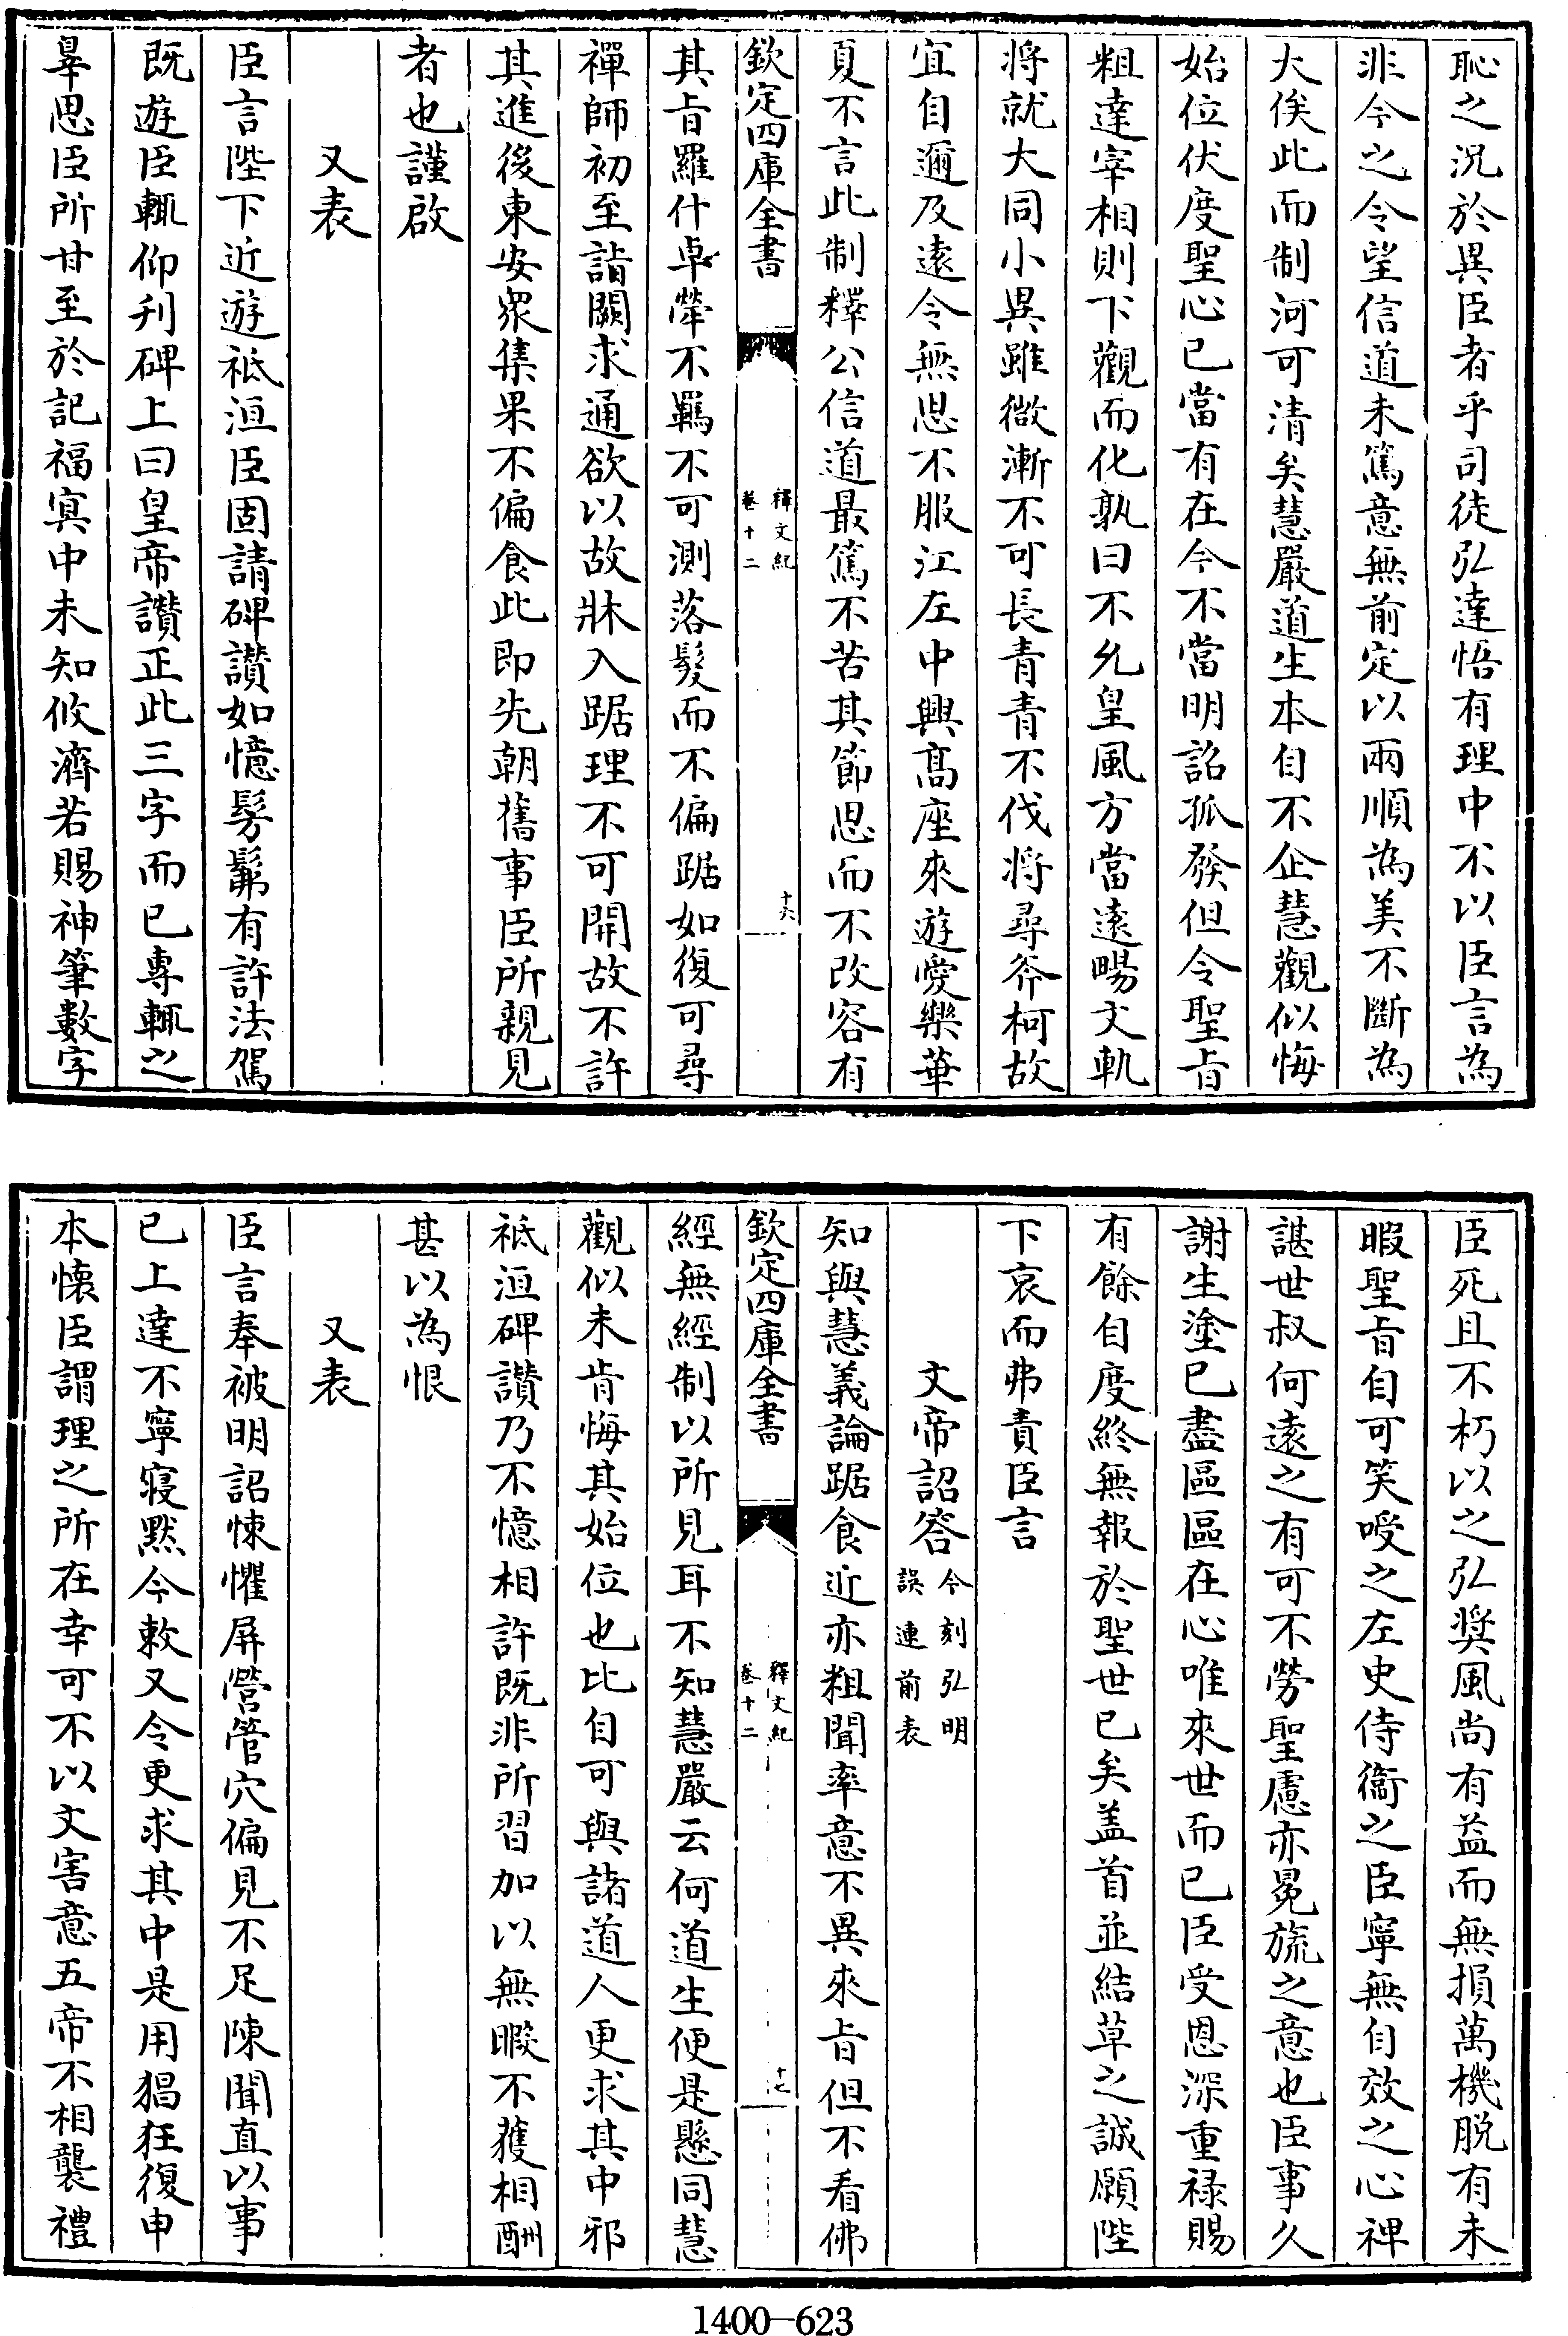 恥之況於異臣者乎司徒弘達悟有理中不以臣言為
非今之令望信道未篤意無前定以兩順為美不斷為
大俟此而制河可清矣慧嚴道生本自不企慧觀似悔
始位伏度聖心已當有在今不當明詔孤發但令聖㫖
粗達宰相則下觀而化孰曰不允皇風方當遠暢文軌
将就大同小異雖微漸不可長青青不伐将尋斧柯故
宜自邇及遠令無思不服江左中興髙座來遊愛樂華
夏不言此制釋公信道最篤不苦其節思而不改容有
欽定四庫全書
釋文紀
卷十二
十六
其㫖羅什卓犖不羈不可測落髮而不偏踞如復可尋
禪師初至詣闕求通欲以故牀入踞理不可開故不許
其進後東安衆集果不偏食此即先朝舊事臣所親見
者也謹啟
又表
臣言陛下近遊祗洹臣固請碑讃如憶髣髴有許法駕
既遊臣輒仰刋碑上曰皇帝讃正此三字而已專輒之
辠思臣所甘至於記福㝠中未知攸濟若賜神筆數字
臣死且不朽以之弘奬風尚有益而無損萬機脱有未
暇聖㫖自可笑唆之左史侍衞之臣寧無自效之心裨
諶世叔何遠之有可不勞聖慮亦冕旒之意也臣事久
謝生塗已盡區區在心唯來世而已臣受恩深重禄賜
有餘自度終無報於聖世已矣盖首並結草之誠願陛
下哀而弗責臣言
文帝詔答
今刻弘明
誤連前表
知與慧義論踞食近亦粗聞率意不異來㫖但不看佛
欽定四庫全書
釋文紀
卷十二
十七
經無經制以所見耳不知慧嚴云何道生便是懸同慧
觀似未肯悔其始位也比自可與諸道人更求其中邪
祗洹碑讃乃不憶相許既非所習加以無暇不獲相酬
甚以為恨
又表
臣言奉被明詔悚懼屏營管穴偏見不足陳聞直以事
已上達不寧寢黙今敕又令更求其中是用猖狂復申
本懷臣謂理之所在幸可不以文害意五帝不相襲禮
1400—623